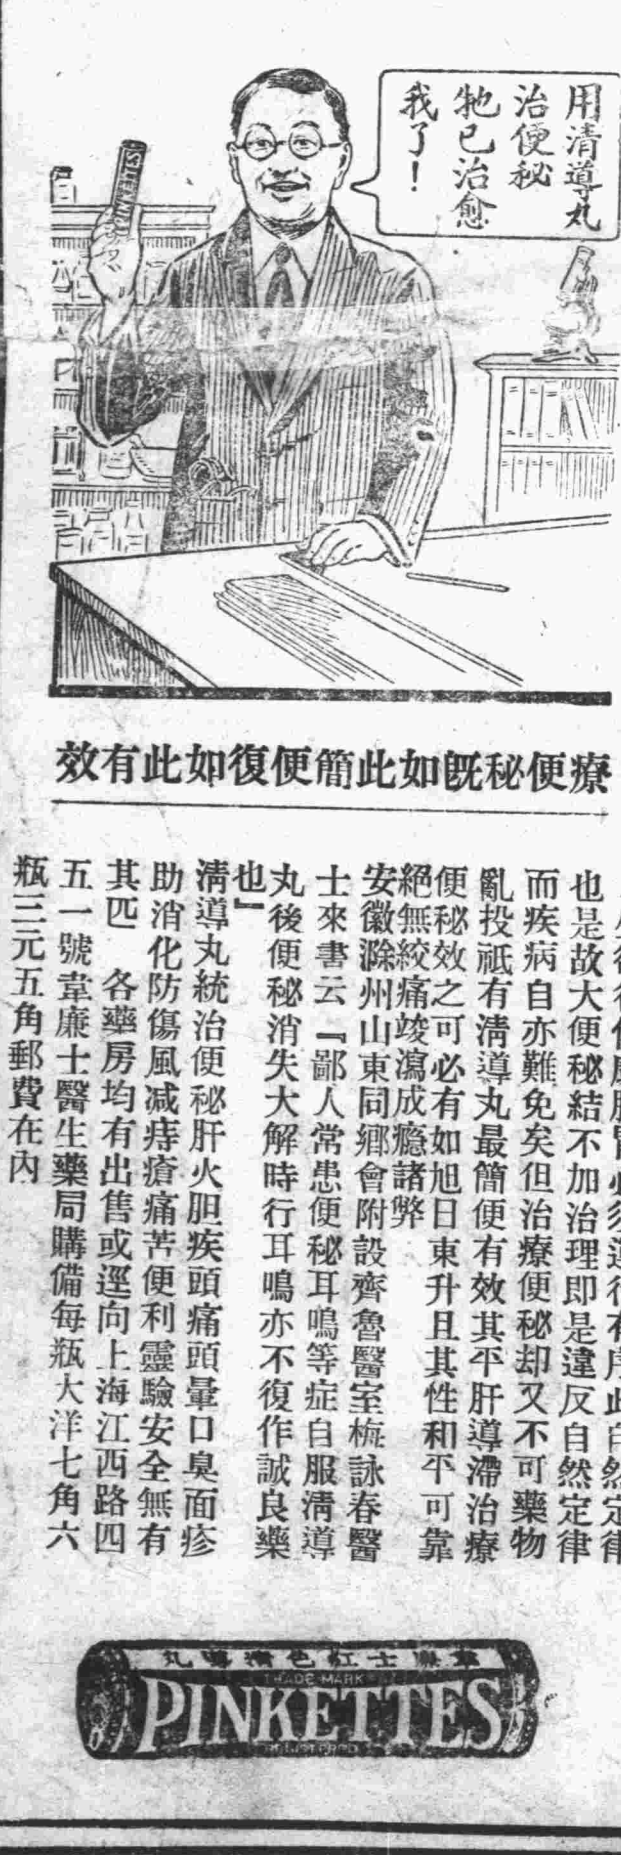 用清導丸
治便秘
牠已治愈
我了！
療便秘既如此簡便復如此有效
必須遵行有序此自然定律
也是故大便秘結不加治理即是違反自然定律
而疾病自亦難免矣但治療便秘却又不可藥物
亂投祇有清導丸最簡便有效其平肝導滯治療
便秘效之可必有如旭日東升且其性和平可靠
絕無絞痛竣瀉成癮諸弊
安徽滁州山東同鄉會附設齊魯醫室梅詠春醫
士來書云『鄙人常患便秘耳鳴等症自服清導
丸後便秘消失大解時行耳鳴亦不復作誠良藥
也』
清導丸統治便秘肝火胆疾頭痛頭暈口臭面疹
助消化防傷風减痔瘡痛苦便利靈驗安全無有
其匹　各藥房均有出售或逕向上海江西路四
五一號韋廉士醫生藥局購備每瓶大洋七角六
瓶三元五角郵費在內
韋廉士紅色清導丸
TRADE MARK
PINKETTES
REGISTERED